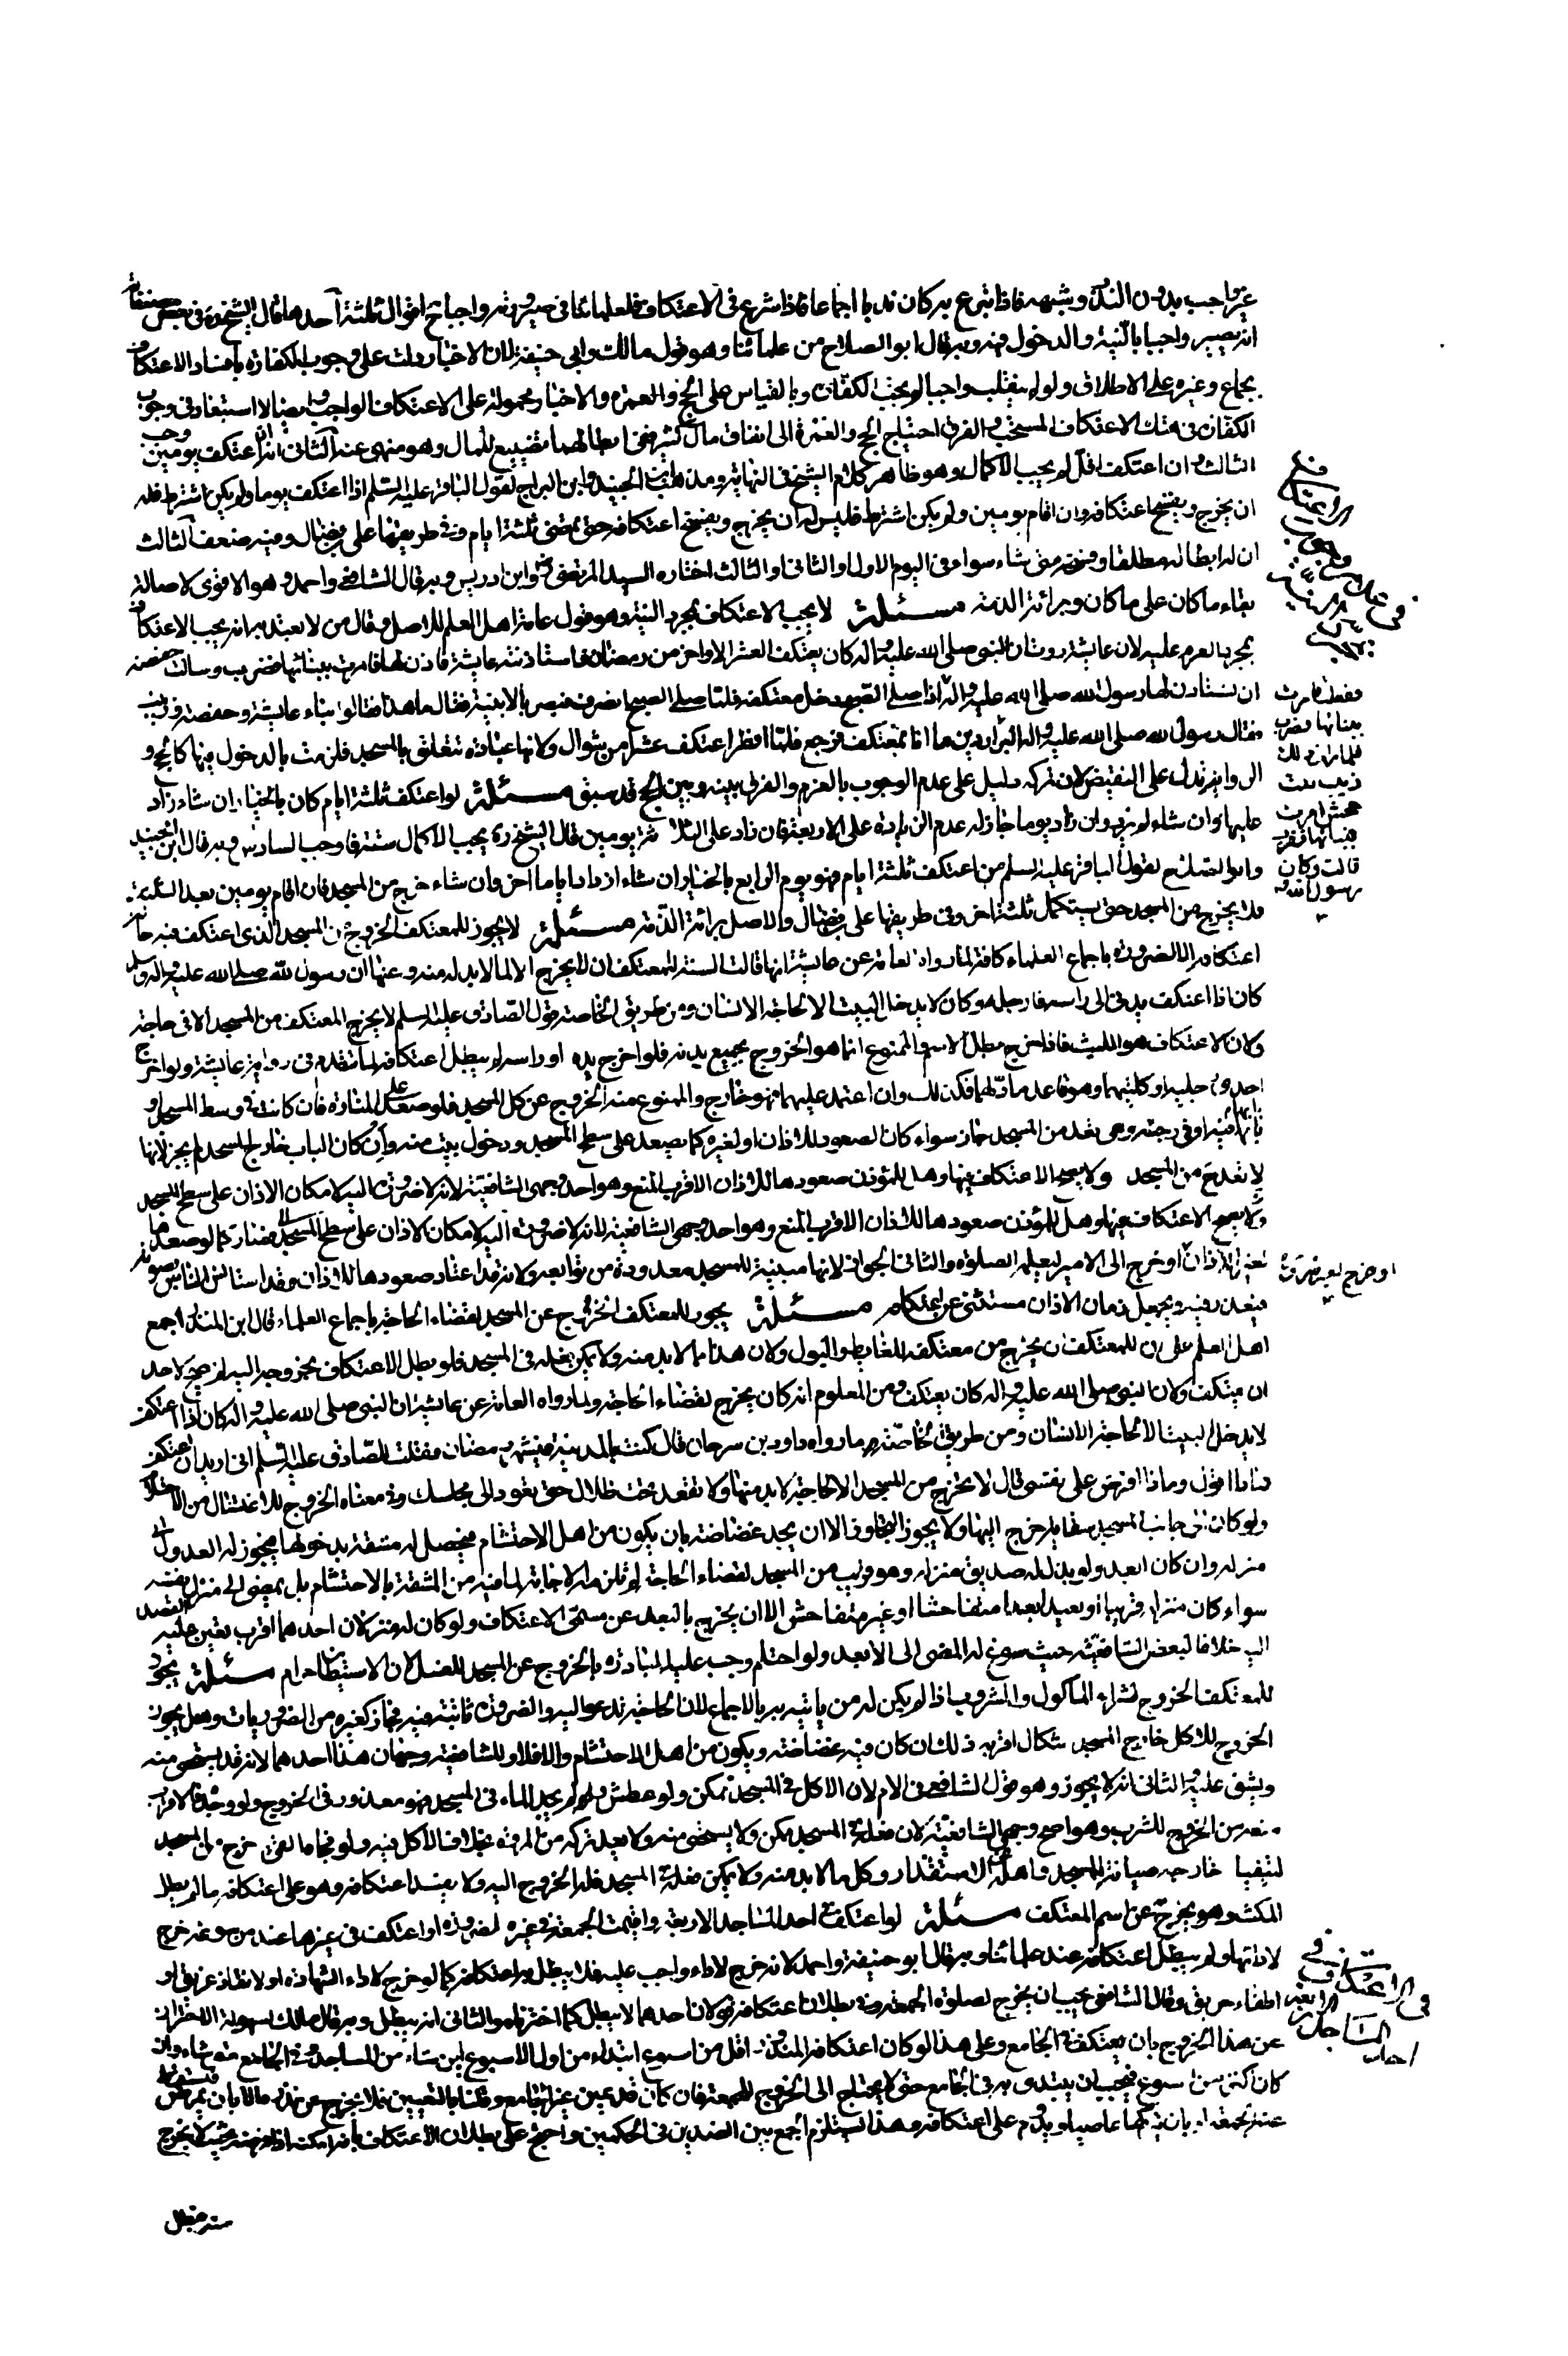 غير واجب بدون النذر وشبهه فاذا تبرع به كان ندبا اجماعا فاذا شرع في الاعتكاف فلعلمائنا في صيرورته واجبا ح اقوال ثلثة احدها قال الشيخ ره في بعض مصنفاته
انه يصير واجبا بالنية والدخول فيه وبه قال ابو الصلاح من علمائنا وهو قول مالك وابي حنيفة لان الاخبار دلت على وجوب الكفارة بافساد الاعتكاف
بجماع وغيره على الاطلاق ولو لم ينقلب واجبا لم يجب الكفارة وبالقياس على الحج والعمرة والاخبار محمولة على الاعتكاف الواجب وايضا لا استبعاد في وجوب
الكفارة في هتك الاعتكاف المستحب والفرق احتياج الحج والعمرة الى انفاق مال كثير ففي ابطالهما تضييع للمال وهو منهي عنه الثاني انه ان اعتكف يومين وجب
الثالث وان اعتكف اقل لم يجب الاكمال وهو ظاهر كلام الشيخ في النهاية ومذهب ابن الجنيد وابن البراج لقول الباقر عليه السلم اذا اعتكف يوما ولم يكن اشترط فله
ان يخرج ويفسخ اعتكافه وان اقام يومين ولم يكن اشترط فليس له ان يخرج ويفسخ اعتكافه حتى تمضى ثلثة ايام وفي طريقها على بن فضال وفيه ضعف الثالث
ان له ابطاله مطلقا وفسخه متى شاء سواء في اليوم الاول او الثاني او الثالث اختاره السيد المرتضى رض وابن ادريس وبه قال الشافعي واحمد وهو الاقوى لاصالة
بقاء ما كان على ما كان وبرائة الذمة مسئلة لا يجب الاعتكاف بمجرد النية وهو قول عامة اهل العلم للاصل وقال من لا يعتد به انه يجب الاعتكاف
بمجرد العزم عليه لان عايشة روت ان النبي صلى الله عليه واله كان يعتكف العشر الاواخر من رمضان فاستاذنته عايشة فاذن لها فامرت ببنائها فضرب وسالت حفصة
ان تستاذن لها رسول الله صلى الله عليه واله اذا صلى الصبح دخل معتكفه فلما صلى الصبح انصرف فبصر بالابنية فقال ما هذا فقالوا بناء عايشة وحفصة وزينب
فقال رسول الله صلى الله عليه واله البر اردن ما انا بمعتكف فرجع فلما افطر اعتكف عشرا من شوال ولانها عبادة تتعلق بالمسجد فلزمت بالدخول فيها كالحج و
الرواية تدل على النقيض لان تركه دليل على عدم الوجوب بالعزم والفرق بينه وبين الحج قد سبق مسئلة لو اعتكف ثلثة ايام كان بالخيار ان شاء زاد
عليها وان شاء لم يزد وان زاد يوما جاز له عدم الزيادة على الاربعة فان زاد على الثلاثة يومين قال الشيخ ره يجب الاكمال ستة فاوجب السادس وبه قال ابن الجنيد
وابو الصلاح لقول الباقر عليه السلم من اعتكف ثلثة ايام فهو يوم الرابع بالخيار ان شاء ازداد اياما اخر وان شاء خرج من المسجد فان اقام يومين بعد الثلثة
فلا يخرج من المسجد حتى يستكمل ثلثة اخر وفي طريقها على بن فضال والاصل برائة الذمة مسئلة لا يجوز للمعتكف الخروج من المسجد الذي اعتكف فيه حال
اعتكافه الا لضرورة باجماع العلماء كافة لما رواه العامة عن عايشة انها قالت السنة للمعتكف ان لا يخرج الا لما لا بد له منه وعنها ان رسول الله صلى الله عليه واله وسلم
كان اذا اعتكف يدني الى راسه فارجله وكان لا يدخل البيت الا لحاجة الانسان ومن طريق الخاصة قول الصادق عليه السلم لا يخرج المعتكف من المسجد الا في حاجة
ولان الاعتكاف هو اللبث فاذا خرج بطل الاسم والممنوع انما هو الخروج بجميع بدنه فلو اخرج يده او راسه لم يبطل اعتكافه لما تقدم في رواية عايشة ولو اخرج
احدى رجليه او كلتيهما وهو قاعد مادّ لهما فكذلك وان اعتمد عليهما فهو خارج والممنوع منه الخروج عن كل المسجد فلو صعد على المنارة فان كانت في وسط المسجد او
بابها فيه او في رحبته وهي تعد من المسجد جاز سواء كان الصعود للاذان او لغيره كما يصعد على سطح المسجد ودخول بيت منه وان كان الباب خارج المسجد لم يجز لانها
لا تعد من المسجد ولا يصح الاعتكاف فيها وهل للمؤذن صعودها للاذان الاقرب المنع وهو احد وجهي الشافعية لانه لا ضرورة اليه لامكان الاذان على سطح المسجد
ولا يصح الاعتكاف فيها وهل للمؤذن صعودها للاذان الاقرب المنع وهو احد وجهي الشافعية لانه لا ضرورة اليه لامكان الاذان على سطح المسجد فصار كما لو صعدها
لغير الاذان او خرج الى الامير ليعلمه الصلوة والثاني الجواز لانها مبنية للمسجد معدودة من توابعه ولانه قد اعتاد صعودها للاذان وقد استانس الناس بصوته
فيعذر فيه ويجعل زمان الاذان مستثنى عن اعتكافه مسئلة يجوز للمعتكف الخروج عن المسجد لقضاء الحاجة باجماع العلماء قال ابن المنذر اجمع
اهل العلم على ان للمعتكف ان يخرج من معتكفه للغايط والبول ولان هذا مما لا بد منه ولا يمكن فعله في المسجد فلو بطل الاعتكاف بخروجه اليه لم يصح لاحد
ان يعتكف ولان النبي صلى الله عليه واله كان يعتكف ومن المعلوم انه كان يخرج لقضاء الحاجة ولما رواه العامة عن عايشة ان النبي صلى الله عليه واله كان اذا اعتكف
لا يدخل البيت الا لحاجة الانسان ومن طريق الخاصة ما رواه داود بن سرحان قال كنت بالمدينة في شهر رمضان فقلت للصادق عليه السلم اني اريد ان اعتكف
فماذا اقول وماذا افرض على نفسي قال لا تخرج من المسجد الا لحاجة لا بد منها ولا تقعد تحت ظلال حتى تعود الى مجلسك وفي معناه الخروج للاغتسال من الاحتلام
ولو كان في جانب المسجد سقاية خرج اليها ولا يجوز التجاوز الا ان يجد غضاضة بان يكون من اهل الاحتشام فيحصل له مشقة بدخولها فيجوز له العدول الى
منزله وان كان ابعد ولو بذل له صديق منزله وهو قريب من المسجد لقضاء الحاجة لم تلزمه الاجابة لما فيه من المشقة بالاحتشام بل يمضي الى منزل نفسه
سواء كان منزله قريبا او بعيدا بعدا متفاحشا او غير متفاحش الا ان يخرج بالبعد عن مسمى الاعتكاف ولو كان له منزلان احدهما اقرب تعين عليه القصد
اليه خلافا لبعض الشافعية حيث سوغ له المضى الى الابعد ولو احتلم وجب عليه المبادرة بالخروج عن المسجد للغسل لان الاستيطان حرام مسئلة يجوز
للمعتكف الخروج لشراء الماكول والمشروب اذا لم يكن له من ياتيه به بالاجماع لان الحاجة تدعو اليه والضرورة ثابتة فيه فجاز كغيره من الضروريات وهل يجوز
الخروج للاكل خارج المسجد اشكال اقربه ذلك ان كان فيه غضاضة ويكون من اهل الاحتشام والا فلا وللشافعية وجهان هذا احدهما لانه قد يستحيى منه
ويشق عليه والثاني انه لا يجوز وهو قول الشافعي في الام لان الاكل في المسجد ممكن ولو عطش ولم يجد الماء في المسجد فهو معذور في الخروج ولو وجده فالاقرب
منعه من الخروج للشرب وهو اصح وجهي الشافعية لان فعله في المسجد ممكن ولا يستحيى منه ولا يعد تركه من المروة بخلاف الاكل فيه ولو فجاه القئ خرج من المسجد
ليتقيا خارجه صيانة للمسجد واهله عن الاستقذار وكل ما لا بد منه ولا يمكن فعله في المسجد فله الخروج اليه ولا يفسد اعتكافه وهو على اعتكافه ما لم يطل
المكث وهو يخرج عن اسم المعتكف مسئلة لو اعتكف في احد المساجد الاربعة واقيمت الجمعة في غيره لضرورة او اعتكف في غيرها عند من سوغه خرج
لادائها ولم يبطل اعتكافه عند علمائنا وبه قال ابو حنيفة واحمد لانه خرج لاداء واجب عليه فلا يبطل به اعتكافه كما لو خرج لاداء الشهادة او لانقاذ غريق او
اطفاء حريق وقال الشافعي يجب ان يخرج لصلوة الجمعة وفي بطلان اعتكافه قولان احدهما لا يبطل كما اخترناه والثاني انه يبطل وبه قال مالك لسهولة الاحتراز
عن هذا الخروج بان يعتكف في الجامع وعلى هذا لو كان اعتكافه المنذور اقل من اسبوع ابتداء من اول الاسبوع اين شاء من المساجد وفي الجامع متى شاء وان
كان اكثر من اسبوع فيجب ان يبتدى به في الجامع حتى لا يحتاج الى الخروج للجمعة فان كان قد عين غير الجامع وقلنا بالتعيين فلا يخرج عن نذره الا بان يمرض فتسقط
عنه الجمعة او بان يتركها عاصيا ويدوم على اعتكافه وهذا يستلزم الجمع بين الضدين في الحكمين واحتج على بطلان الاعتكاف بانه امكنه اداء فرضه بحيث لا يخرج
في عدم وجوب
الاعتكاف
ففعلت فامرت
ببنائها فضرب
فلما رات ذلك
زينب بنت
جحش امرت
ببنائها فضرب
قالت وكان
رسول الله ص
او خرج لغير ضرورة
في الاعتكاف
المساجد
الاربعة